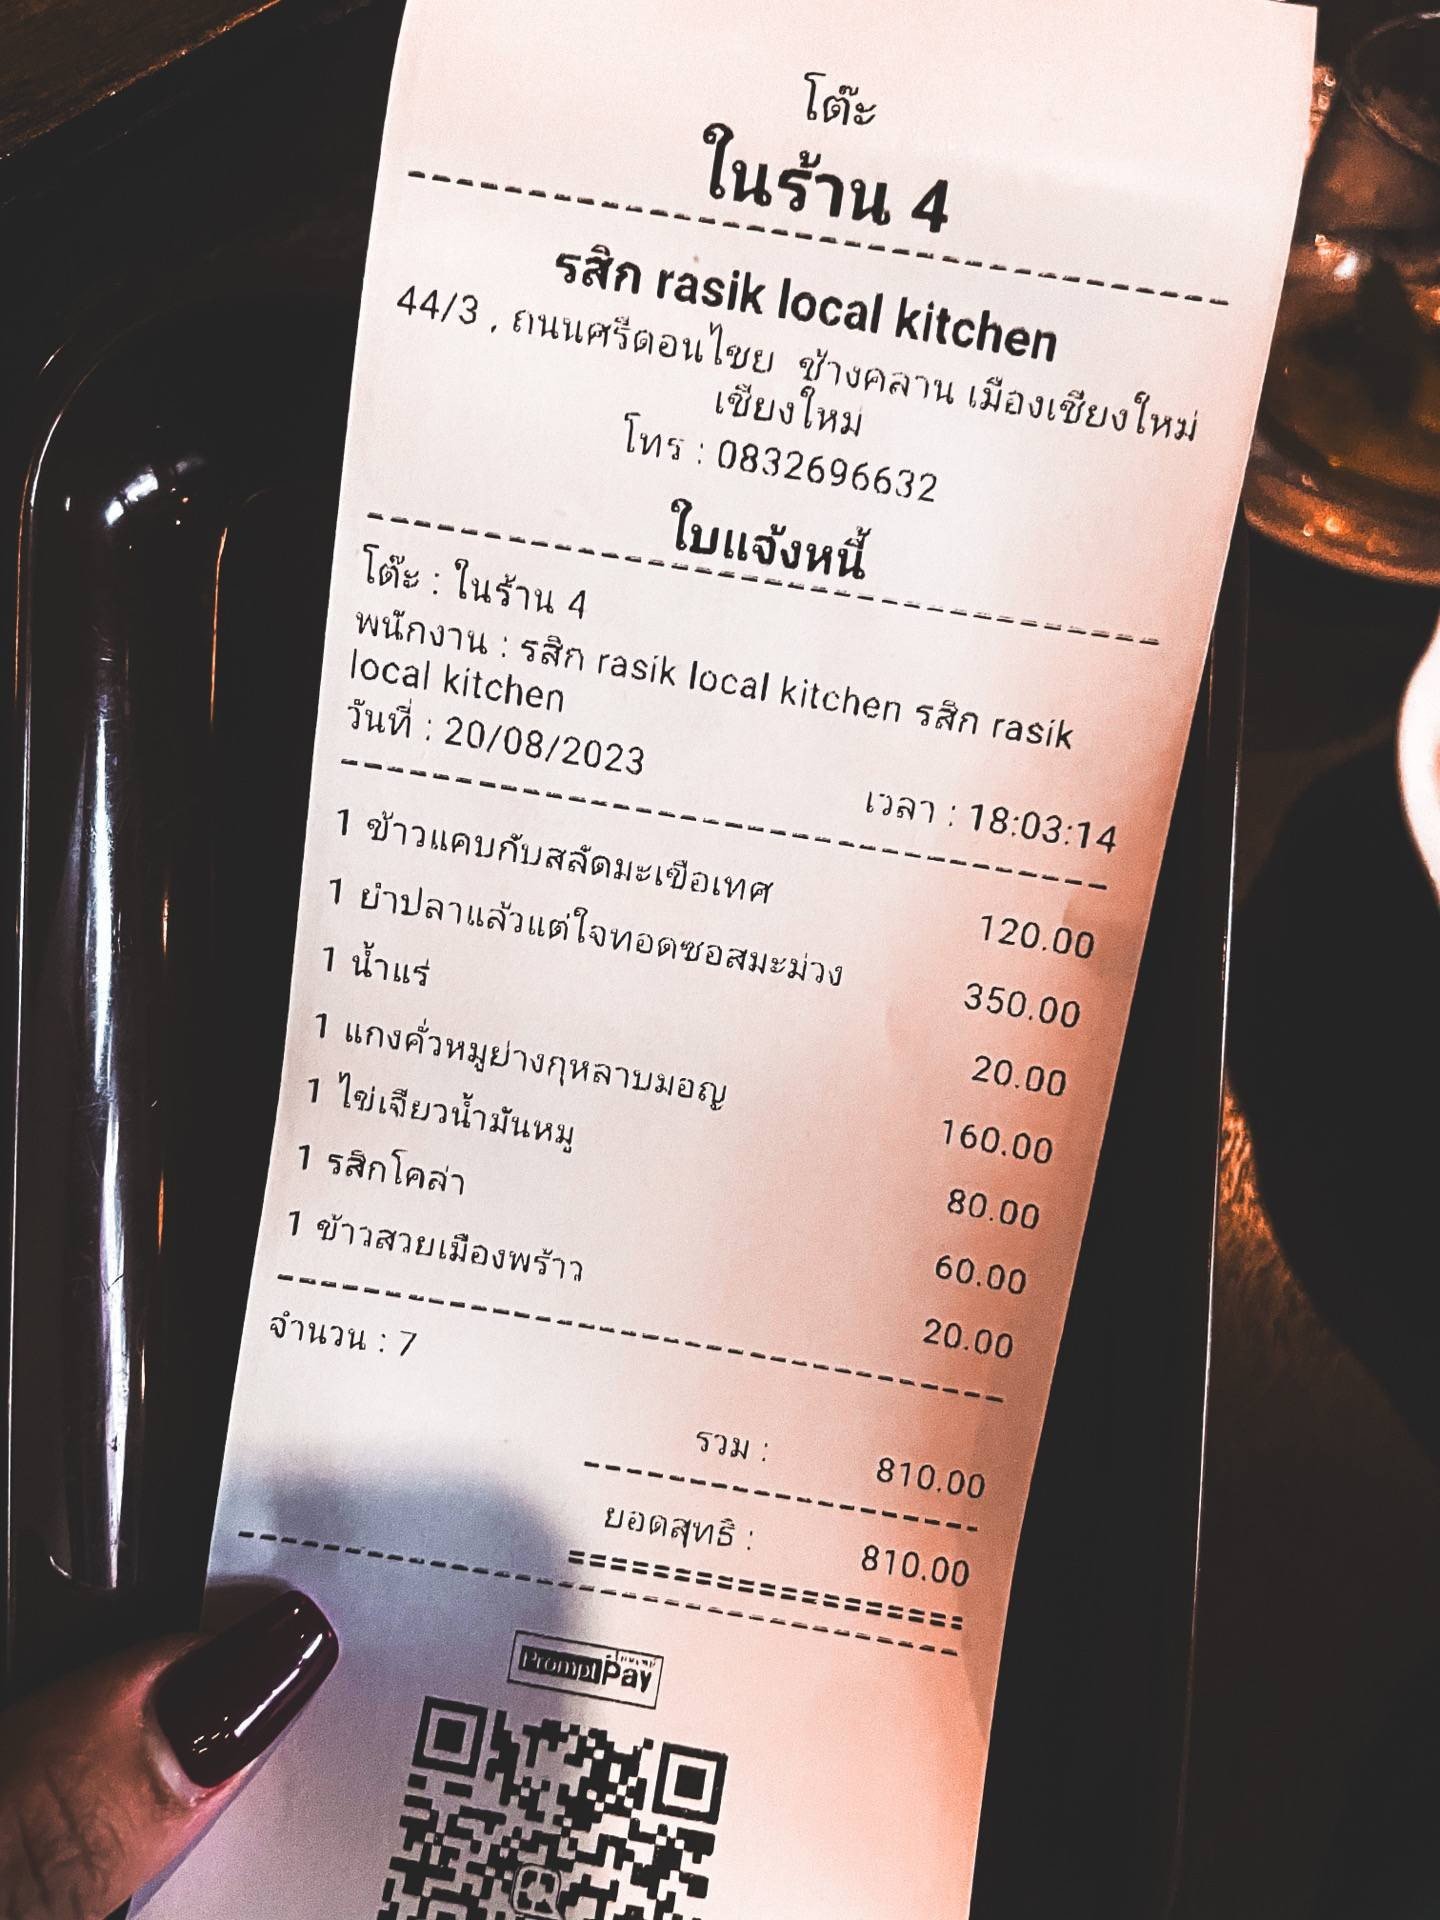 โต๊ะ
ในร้าน 4
รสิก rasik local kitchen
44/3 , ถนนศรีดอนไชย ช้างคลาน เมืองเชียงใหม่
เชียงใหม่
โทร : 0832696632
ใบแจ้งหนี้
โต๊ะ : ในร้าน 4
พนักงาน : รสิก rasik local kitchen รสิก rasik
local kitchen
วันที่ : 20/08/2023 เวลา : 18:03:14
1 ข้าวแคบกับสลัดมะเขือเทศ 120.00
1 ยำปลาแล้วแต่ใจทอดซอสมะม่วง 350.00
1 น้ำแร่ 20.00
1 แกงคั่วหมูย่างกุหลาบมอญ 160.00
1 ไข่เจียวน้ำมันหมู 80.00
1 รสิกโคล่า 60.00
1 ข้าวสวยเมืองพร้าว 20.00
จำนวน : 7
รวม : 810.00
ยอดสุทธิ : 810.00
PromptPay